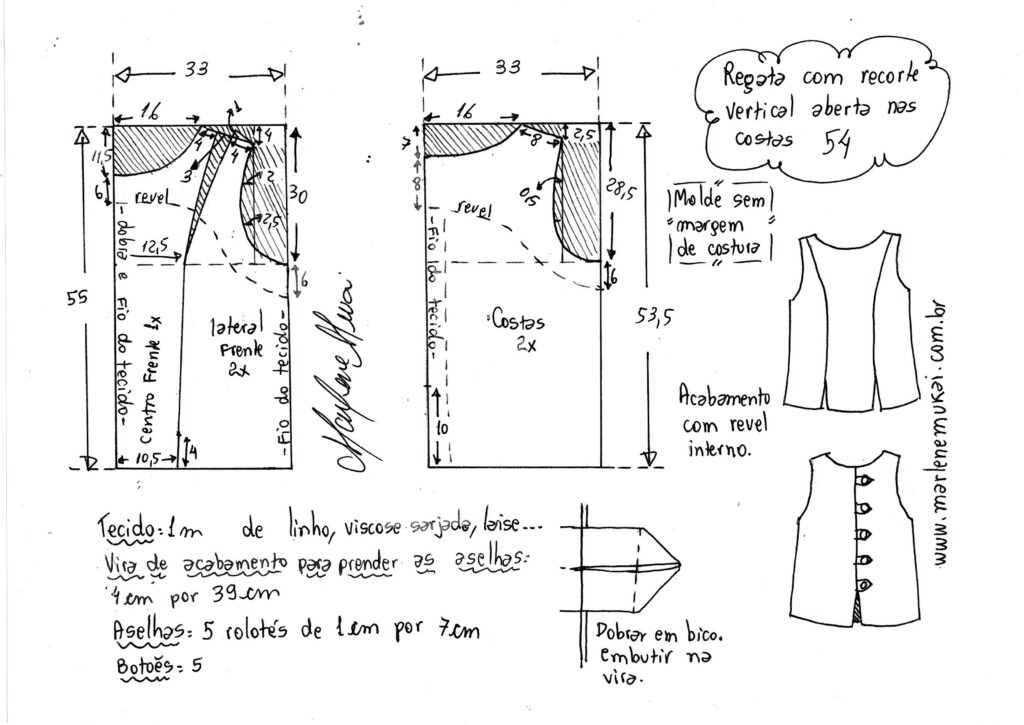 Regata com recorte
vertical aberta nas
costas 54
Molde sem
margem
de costura
33
16
1
4
4
4
11,5
3
2
6
revel
2,5
30
12,5
6
55
dobra e fio do tecido
Centro Frente 1x
lateral
Frente
2x
Fio do tecido
10,5
4
Marlene Mukai
33
16
7
8
2,5
8
0,5
28,5
revel
6
Fio do tecido
Costas
2x
53,5
10
Acabamento
com revel
interno.
www.marlenemukai.com.br
Tecido: 1m de linho, viscose sarjada, laise...
Vira de acabamento para prender as aselhas:
4cm por 39cm
Aselhas: 5 rolotés de 1cm por 7cm
Botões: 5
Dobrar em bico.
embutir na
vira.